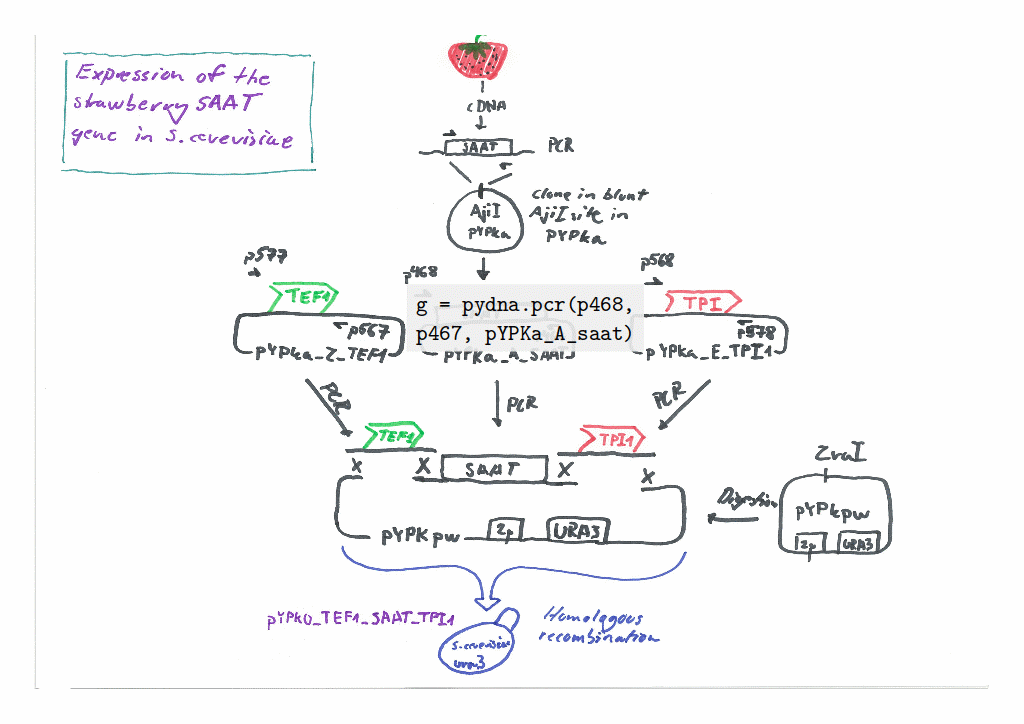 Expression of the
strawberry SAAT
gene in S. cerevisiae
cDNA
SAAT
PCR
AjiI
pYPKa
Clone in blunt
AjiI site in
pYPKa
p577
p468
p568
TEF1
TPI
g = pydna.pcr(p468,
p467, pYPKa_A_saat)
p567
p578
pYPka_Z_TEF1
pYPKa_A_SAAT
pYPKa_E_TPI1
PCR
PCR
PCR
TEF1
TPI1
X
X
SAAT
X
X
ZraI
Digestion
pYPkpw
2µ
URA3
pYPKpw
2µ
URA3
pYPK0_TEF1_SAAT_TPI1
Homologous
recombination
S. cerevisiae
ura3